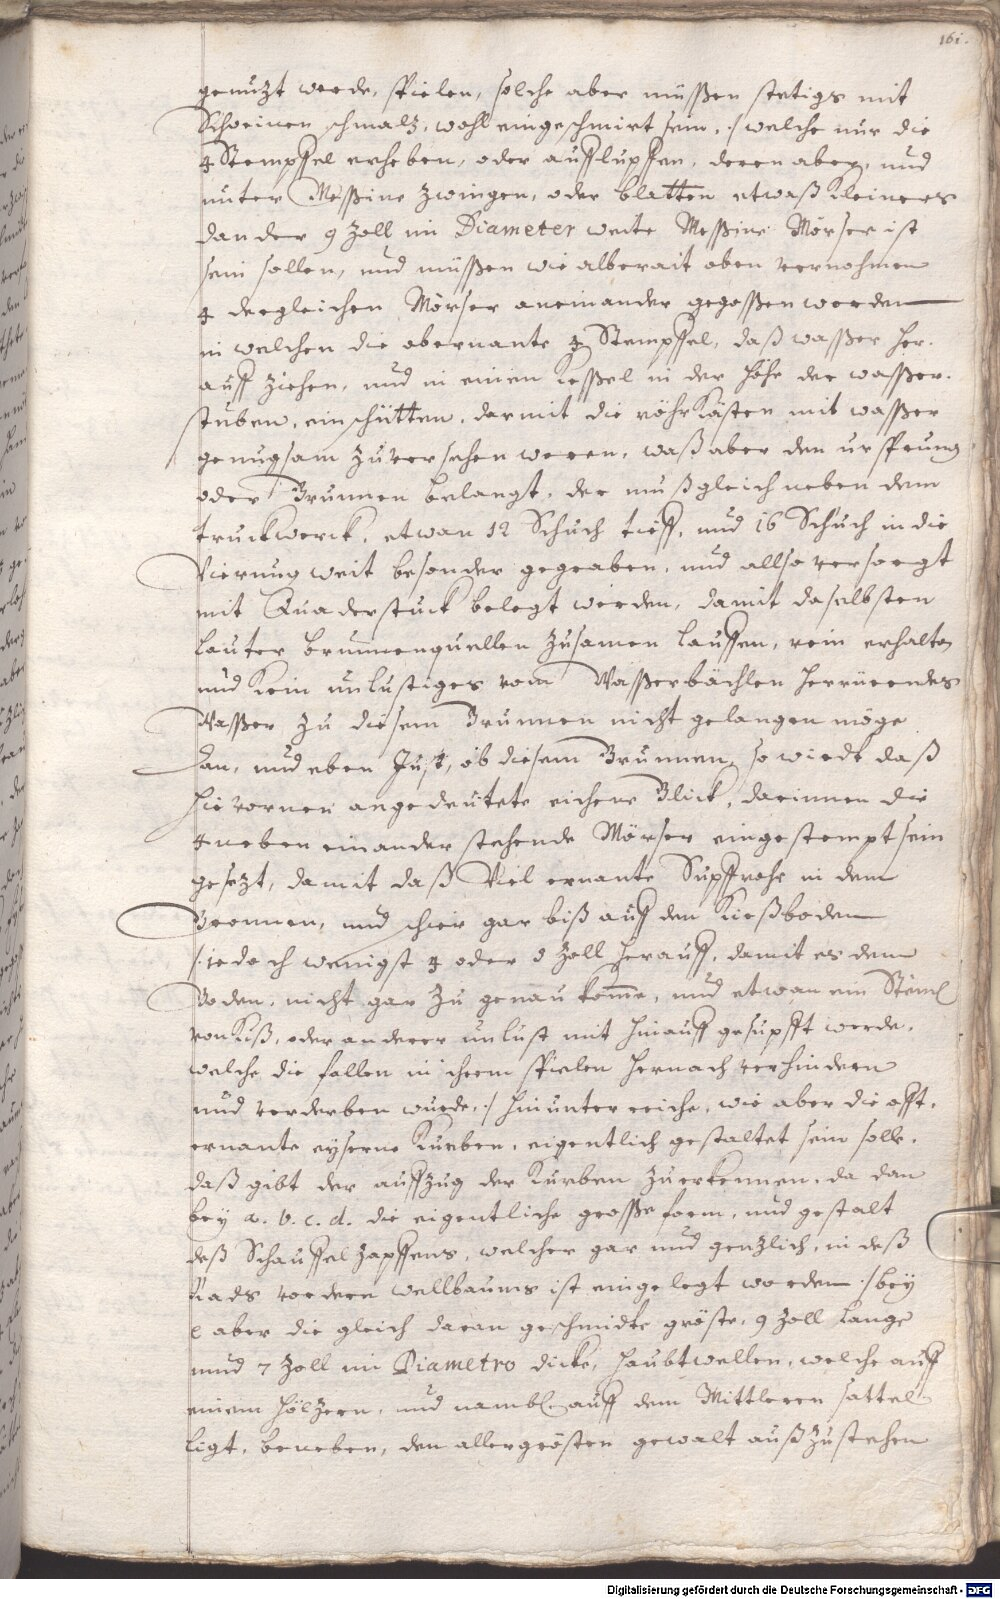 161.
genuzt werde, spielen, solche aber müßen stetigs mit
Schweinen schmalz, wohl eingeschmirt sein, :/ welche nur die
4 Stempffel erheben, oder aufflupffen, deren aber, und
unter Meßine zwingen, oder blatten etwaß kleiners
dan der 9 Zoll im Diameter weite Meßine Mörser ist
sein sollen, und müßen wie alberait oben vernohmen
4 dergleichen Mörser aneinander gegoßen werden
in welchen die obernante 4 Stempffel, daß waßer her-
auff ziehen, und in einen Keßel in der höhe der waßer-
stuben, einschütten, darmit die röhrkästen mit waßer
genugsam zuversehen weren, waß aber den ursprung
oder Brunnen belangt, der muß gleich neben dem
truckwerck, etwan 12 Schuch tieff, und 16 Schuch in die
Vierung weit besonder gegraben, und allso versorgt
mit Quaderstuck belegt werden, damit daselbsten
lauter brunnenquellen zusamen lauffen, rein erhalten
und kein unlustiges vom Waßerbächlen herrürendes
Waßer zu diesem Brunnen nicht gelangen möge
Dan, und eben Just, ob diesem Brunnen, so wirdt daß
hievornen angedeutete eichene Blick, darinnen die
4 neben einander stehende Mörser eingestempt sein
gesezt, damit daß Viel ernante Supffrohr in dem
Bronnen, und schier gar biß auff den Kießboden
/: jedoch wenigst 4 oder 5 Zoll herauff, damit es dem
Boden, nicht gar zu genau komme, und etwan ein Steinl
von Kiß, oder anderer unlust mit hinauff gesupfft werde,
welche die fallen in ihrem spielen hernach verhindern
und verderben wurde, :/ hinunter reiche, wie aber die offt-
ernante eyserne Kurben, eigentlich gestaltet sein solle,
daß gibt der auffzug der Kurben zuerkennen, da dan
bey a. b. c. d. die eigentliche große form, und gestalt
deß Schauffelzapffens, welcher gar und genzlich, in deß
Rads vordern wellbaums ist eingelegt worden :/ bey
e aber die gleich daran geschmidte gröste, 9 Zoll lange
unnd 7 Zoll im Diametro dicke, haubtwellen, welche auff
einem hölzern, und nambl. auff dem Mittlern sattel
ligt, beneben, den allergrösten gewalt außzustehen
Digitalisierung gefördert durch die Deutsche Forschungsgemeinschaft - DFG